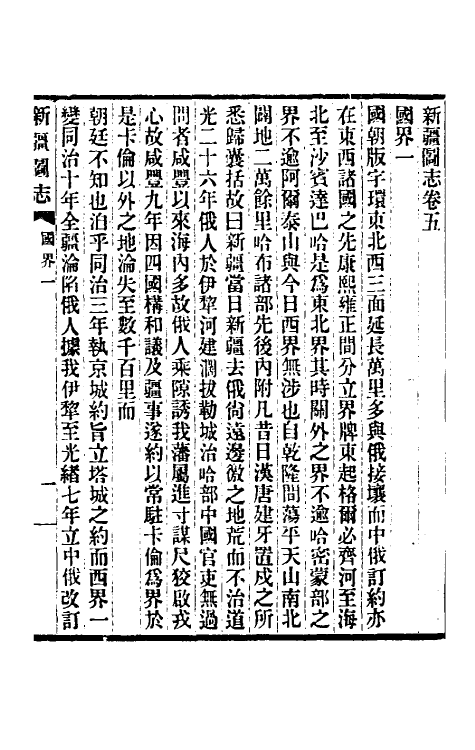 新疆圖志卷五
國界一
國朝版字環東北西三面延長萬里多與俄接壤而中俄訂約亦
在東西諸國之先康熙雍正間分立界牌東起格爾必齊河至海
北至沙賓達巴哈是爲東北界其時關外之界不逾哈密蒙部之
界不逾阿爾泰山與今日西界無涉也自乾隆間蕩平天山南北
闢地二萬餘里哈布諸部先後內附凡昔日漢唐建牙置戍之所
悉歸囊括故曰新疆當日新疆去俄尙遠邊徼之地荒而不治道
光二十六年俄人於伊犂河建濶拔勒城治哈部中國官吏無過
問者咸豐以來海內多故俄人乘隙誘我藩屬進寸謀尺狡啟戎
心故咸豐九年因四國構和議及疆事遂約以常駐卡倫爲界於
是卡倫以外之地淪失至數千百里而
朝廷不知也洎乎同治三年執京城約旨立塔城之約而西界一
變同治十年全疆淪陷俄人據我伊犂至光緒七年立中俄改訂
新疆圖志
國界一
一